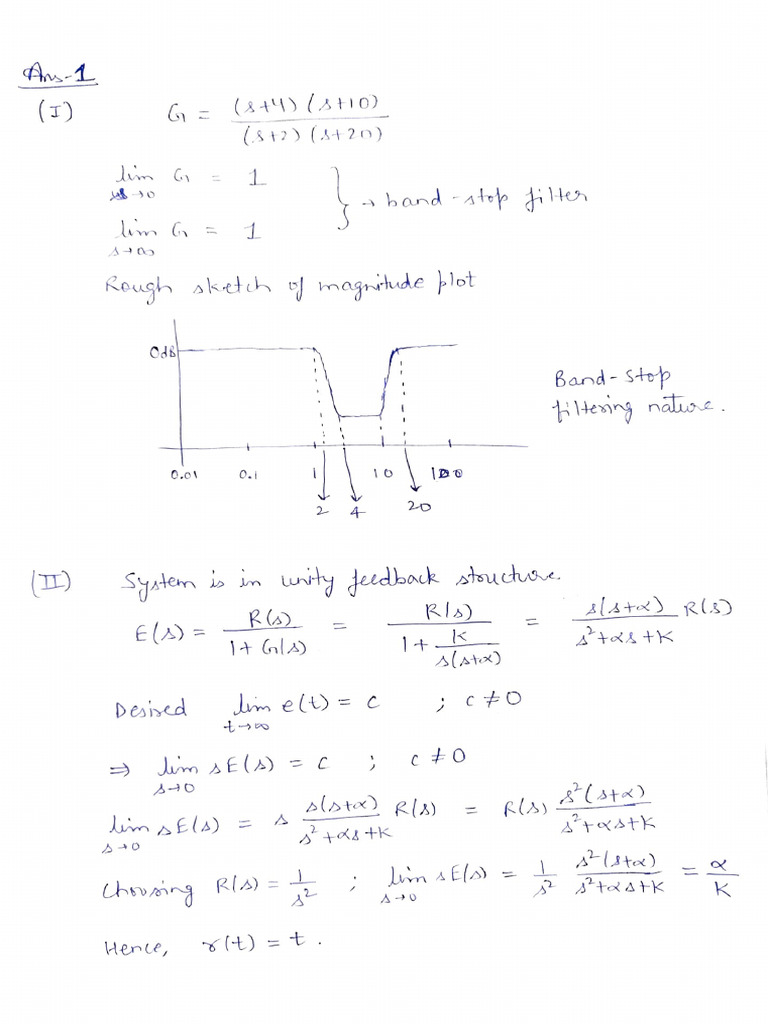 Ans-1
(I) G = (s+4)(s+10) / (s+2)(s+20)
lim s→0 G = 1
lim s→∞ G = 1 } → band-stop filter
Rough sketch of magnitude plot
0dB
Band-stop
filtering nature.
0.01 0.1 1 10 100
2 4 20
(II) System is in unity feedback structure.
E(s) = R(s) / 1+G(s) = R(s) / 1+ K / s(s+α) = s(s+α) / s²+αs+K R(s)
Desired lim t→∞ e(t) = c ; c ≠ 0
⇒ lim s→0 sE(s) = c ; c ≠ 0
lim s→0 sE(s) = s s(s+α) / s²+αs+K R(s) = R(s) s²(s+α) / s²+αs+K
Choosing R(s) = 1 / s² ; lim s→0 sE(s) = 1 / s² s²(s+α) / s²+αs+K = α / K
Hence, r(t) = t.